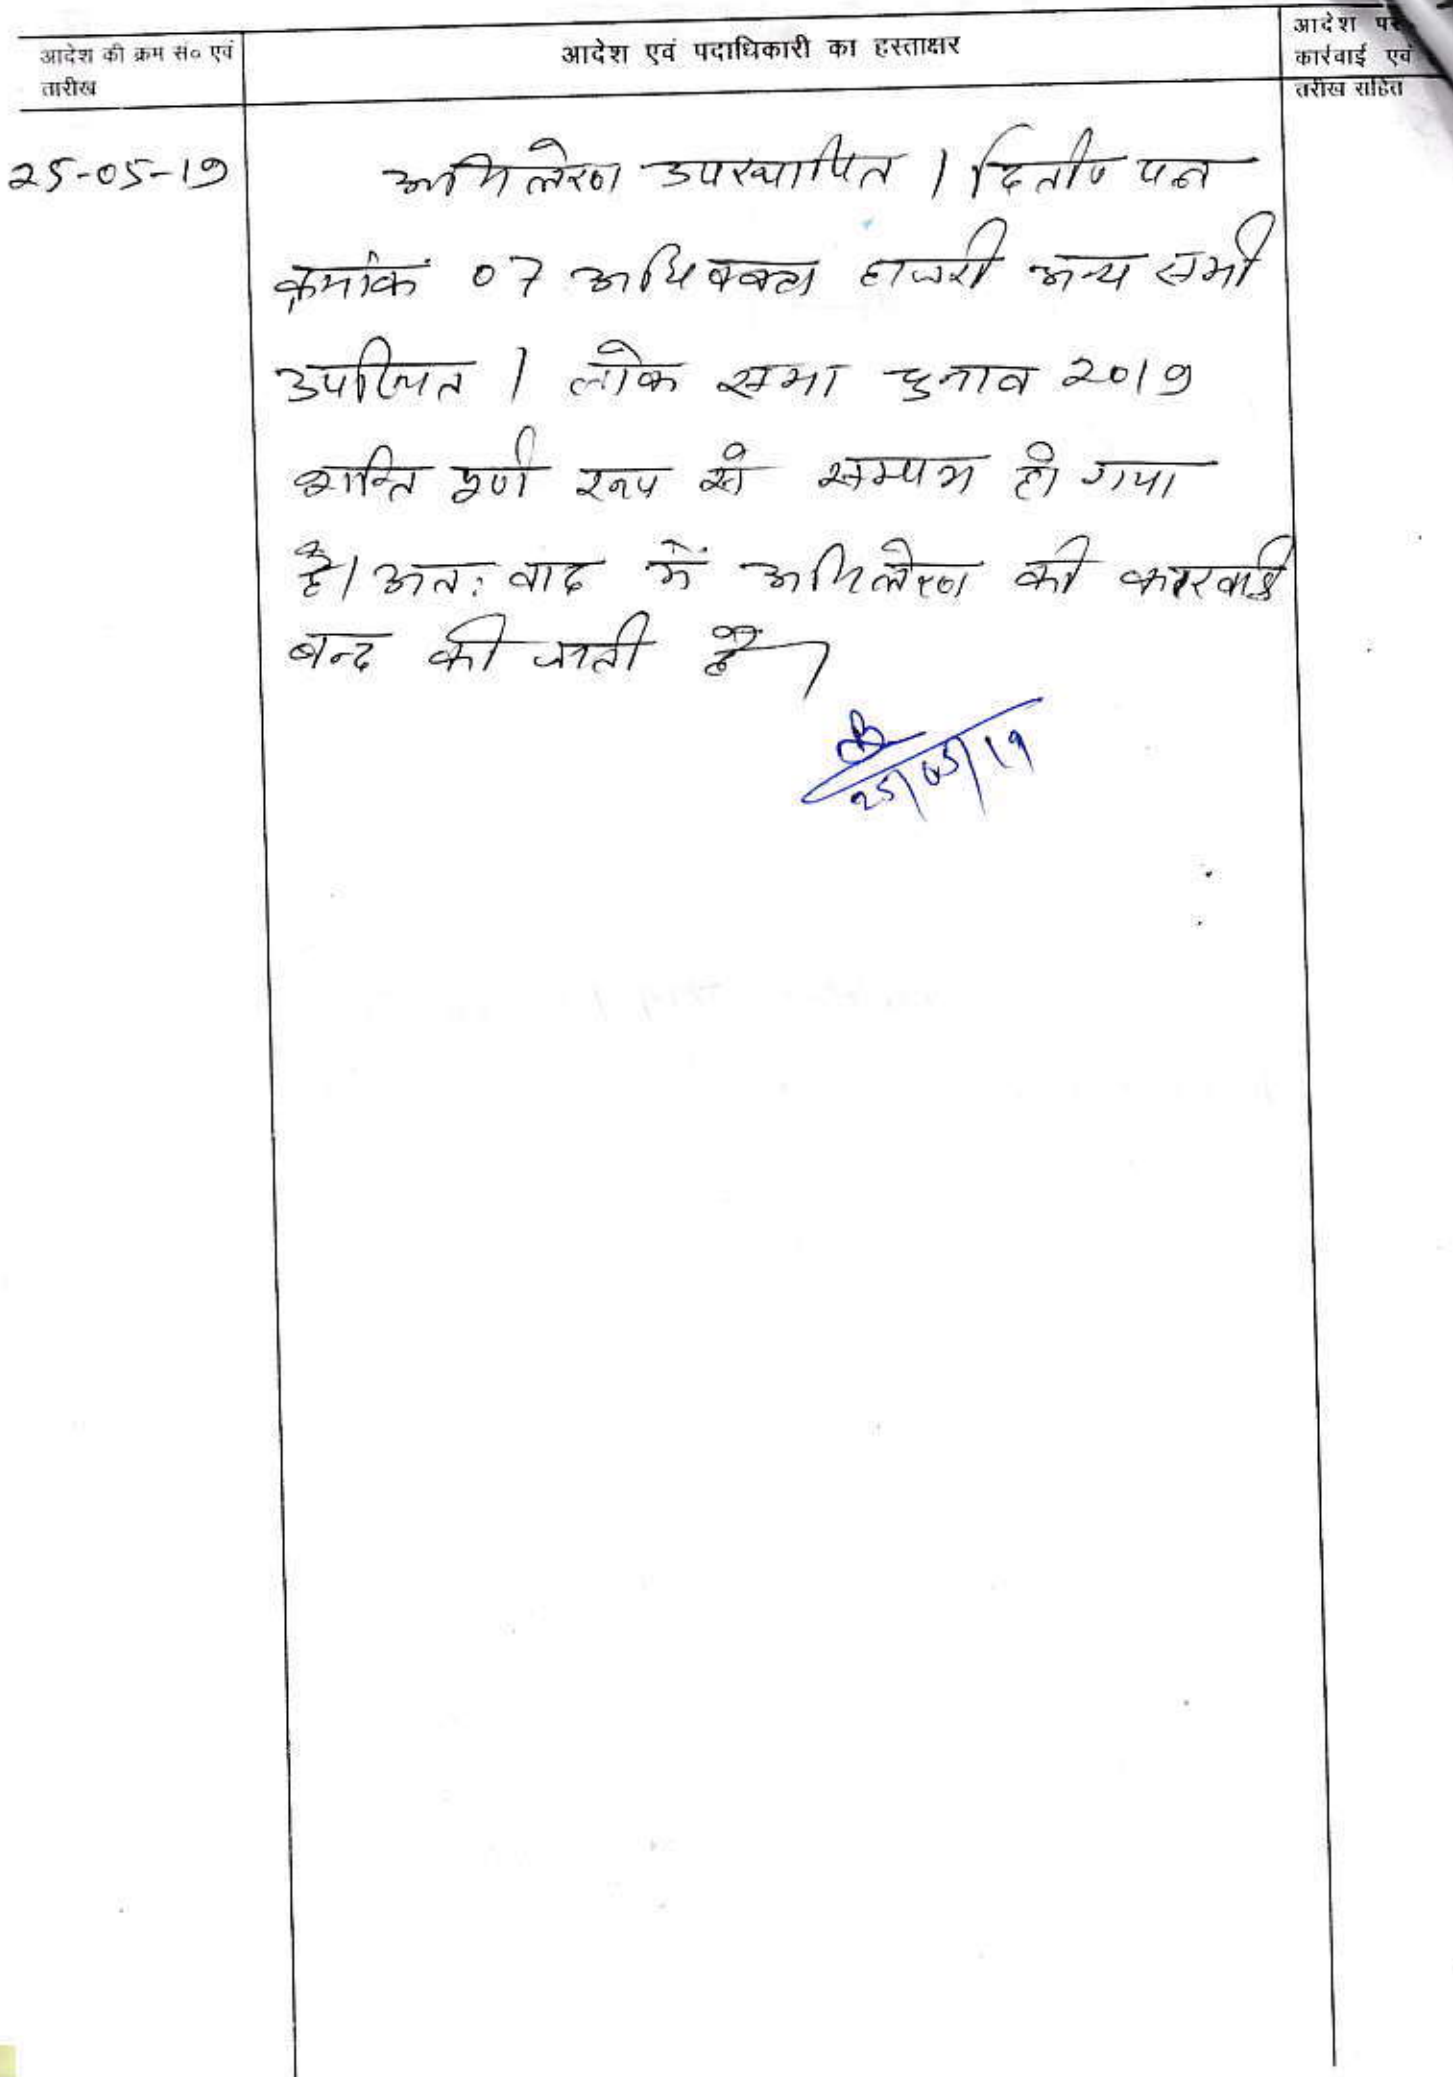 आदेश की क्रम सं० एवं
तारीख
आदेश एवं पदाधिकारी का हस्ताक्षर
आदेश
कार्रवाई एवं
तरीख सहित
25-05-19
अभिलेख उपस्थापित । द्वितीय पक्ष
क्रमांक 07 अधिवक्ता हाजरी अन्य सभी
उपस्थित । लोक सभा चुनाव 2019
शान्ति पूर्ण रूप से सम्पन्न हो गया
है। अतः वाद में अभिलेख की कारवाई
बन्द की जाती है।
25/05/19